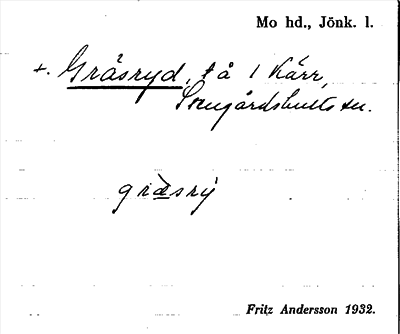 Mo hd., Jönk. l.
+. Gräsryd, t å 1 Kärr,
Stengårdshults sn.
gräsrý
Fritz Andersson 1932.